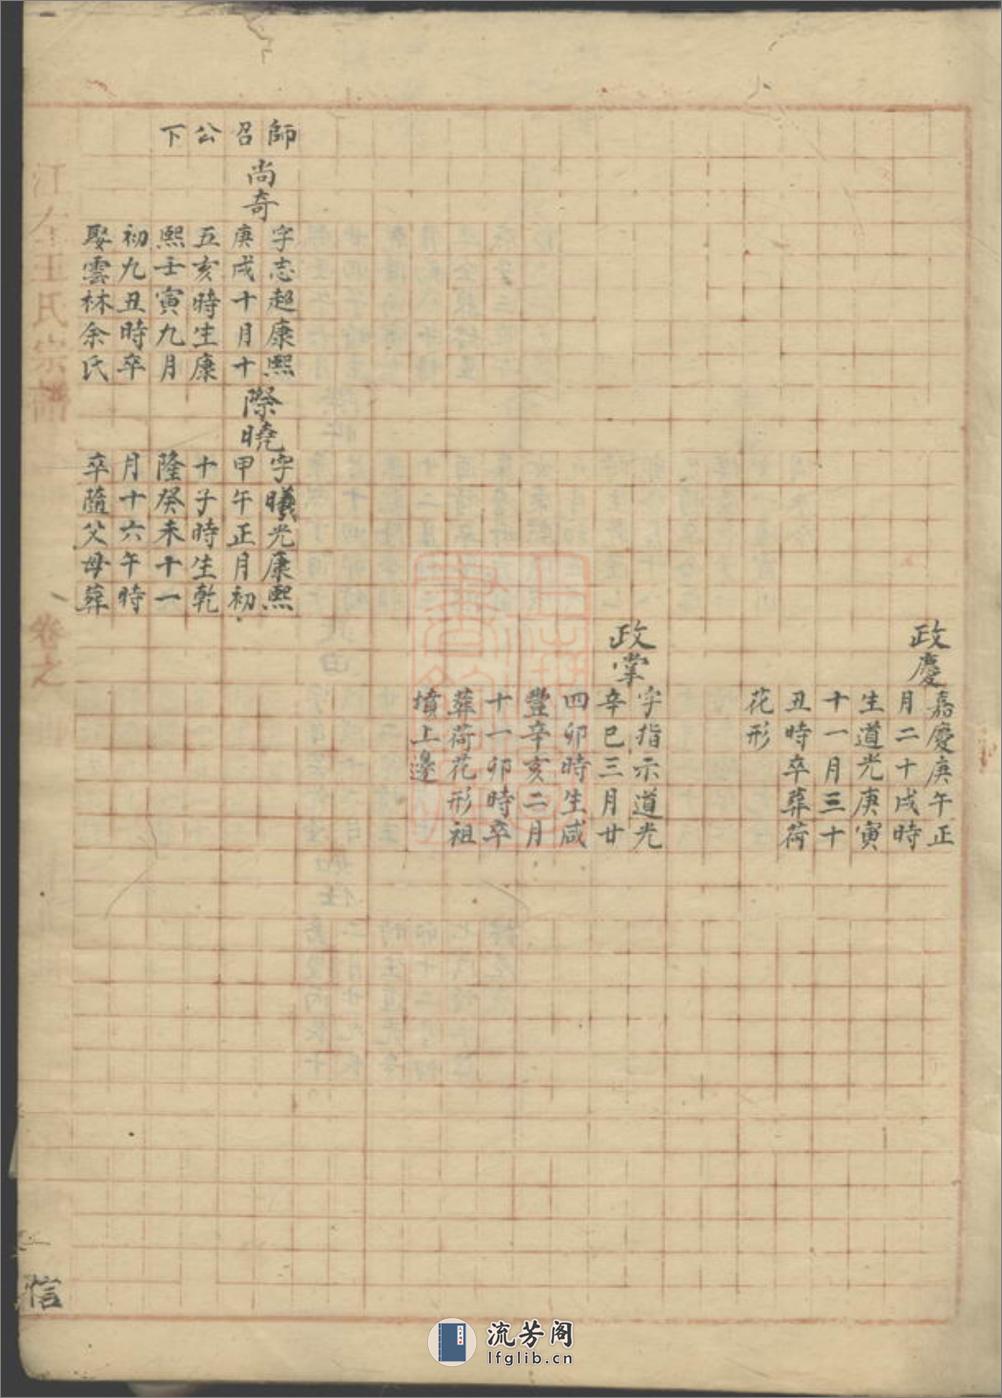 政慶
嘉慶庚午正
月二十戌時
生道光庚寅
十一月三十
丑時卒葬荷
花形
政掌
字指示道光
辛巳三月廿
四卯時生咸
豐辛亥二月
十一卯時卒
葬荷花形祖
墳上邊
師召公下
尚奇
字志超康熙
庚戌十月十
五亥時生康
熙壬寅九月
初九丑時卒
娶雲林余氏
際曉
字曦光康熙
甲午正月初
十子時生乾
隆癸未十一
月十六午時
卒隨父母葬
王氏宗譜
卷之
信
流芳阁
lfglib.cn